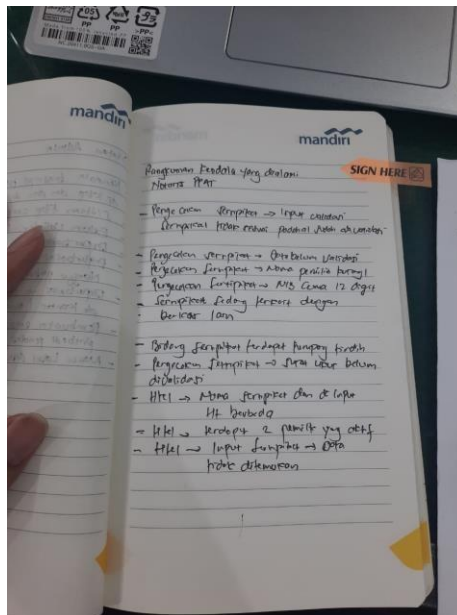 mandiri
mandiri
SIGN HERE
Rangkuman Kendala yang dialami
Notaris PPAT
- Pengecekan Sertipikat → Input validasi
Sertipikat tidak padahal sudah
- Pengecekan Sertipikat → Data belum validasi
- Pengecekan Sertipikat → Nama pemilik
- Pengecekan Sertipikat → NIB Cuma 12 digit
- Sertipikat Sedang dengan
- berkas lain
- Bidang Sertipikat terdapat tumpang tindih
- Pengecekan Sertipikat → surat ukur belum
divalidasi
- HTel → Nama Sertipikat dan di input
HT berbeda
- HTel → terdapat 2 pemilik yang aktif
- HTel → Input Sertipikat → Data
tidak ditemukan